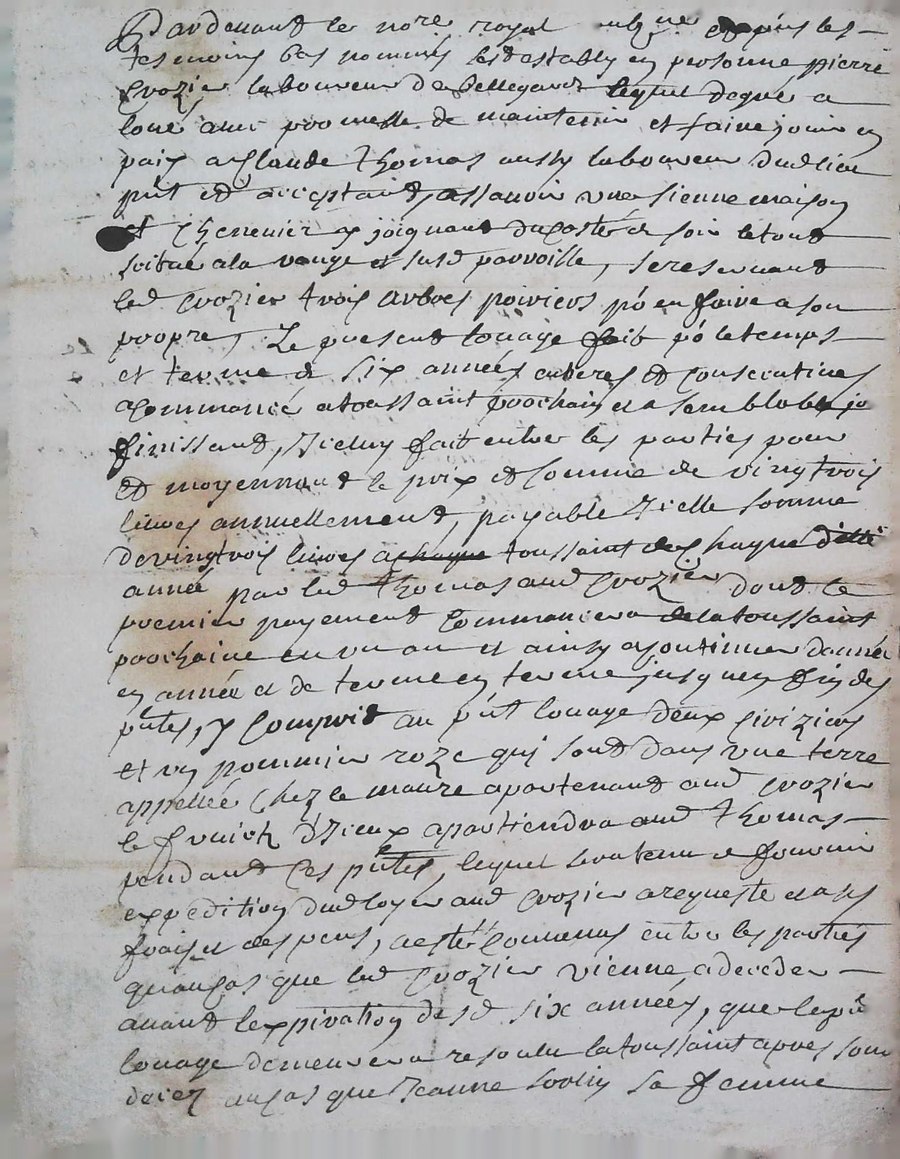 Pardevant le nore royal et puis les
tesmoins bas nommés sest estably en personne pierre
Crozier laboureur de bellegarde lequel degré a
loué avec promesse de maintenir et faire jouir en
paix a Claude Thomas aussy laboureur dud lieu
pnt et acceptant, assavoir une sienne maison
et chenevier y joignant du costé de soir le tout
scitué a la et susd parroisse, se reservant
led Crozier trois arbres poiriers po en faire a son
propre, Le present louage fait po le temps
et terme de six années entieres et consecutives
a commancé a toussaint prochain et a semblable jo
finissant, Icelluy fait entre les parties pour
et moyennant le prix et somme de vingtrois
livres annuellement, payable Icelle somme
de vingtrois livres a chaque toussaint de chaque ditte
année par led Thomas aud Crozier dont le
premier payement commancera de la toussaint
prochaine en un an et ainsy a continuer dannée
en année et de terme en terme jusques en fin des
pntes, y compris au pnt louage deux ciriziers
et un pommier roze qui sont dans une terre
appellée Chez le maure apartenant aud Crozier
le fruict dIceux apartiendra aud Thomas
pendant ces pntes, lequel sera tenu de fournir
expedition dud loyer aud Crozier a requeste et a ses
frais et despens, a esté convenus entre les parties
quau cas que led Crozier vienne a deceder
avant lexpiration desd six années, que le pnt
louage demeurera resoulu la toussaint apres son
decez au cas que Jeanne sa femme